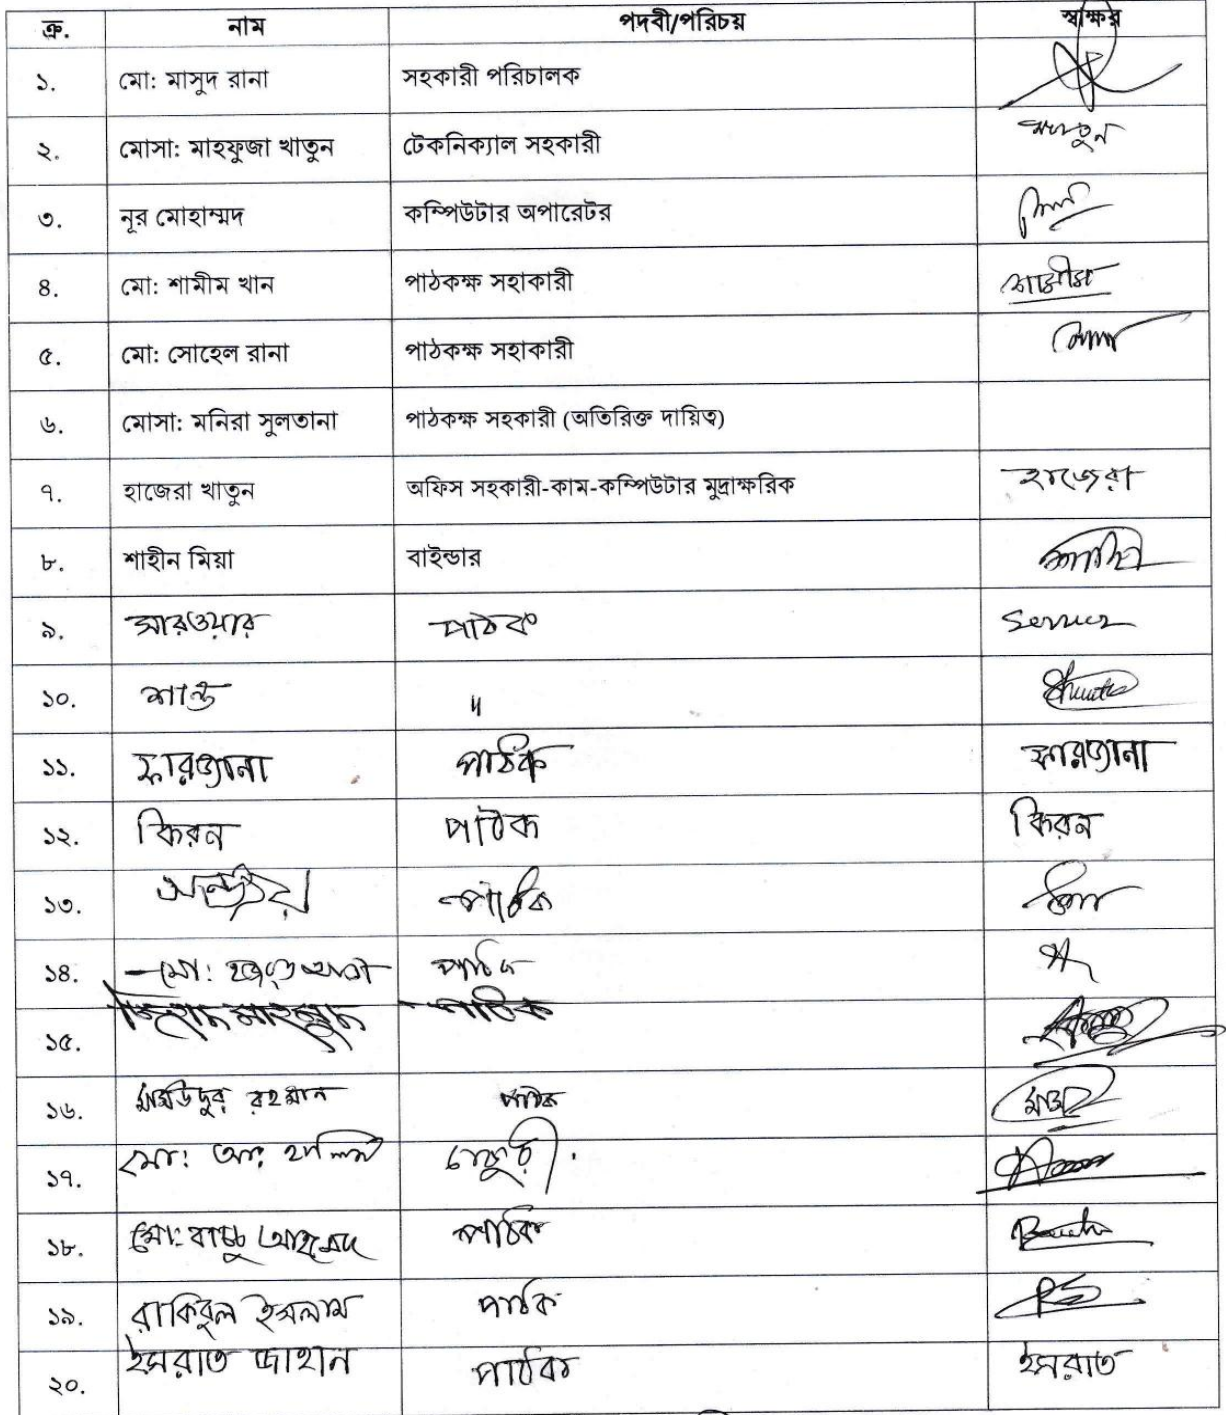 ক্র. নাম পদবী/পরিচয় স্বাক্ষর
১. মো: মাসুদ রানা সহকারী পরিচালক
২. মোসা: মাহফুজা খাতুন টেকনিক্যাল সহকারী
৩. নূর মোহাম্মদ কম্পিউটার অপারেটর
৪. মো: শামীম খান পাঠকক্ষ সহাকারী শামীম
৫. মো: সোহেল রানা পাঠকক্ষ সহাকারী
৬. মোসা: মনিরা সুলতানা পাঠকক্ষ সহকারী (অতিরিক্ত দায়িত্ব)
৭. হাজেরা খাতুন অফিস সহকারী-কাম-কম্পিউটার মুদ্রাক্ষরিক হাজেরা
৮. শাহীন মিয়া বাইন্ডার
৯. সারওয়ার পাঠক
১০. শান্ত "
১১. ফারজানা পাঠক ফারজানা
১২. কিরন পাঠক কিরন
১৩. পাঠক
১৪. মো: পাঠক
১৫. পাঠক
১৬. রহমান পাঠক
১৭. মো:
১৮. মো: বাচ্চু আহমেদ পাঠক
১৯. রাকিবুল ইসলাম পাঠক
২০. ইসরাত জাহান পাঠক ইসরাত